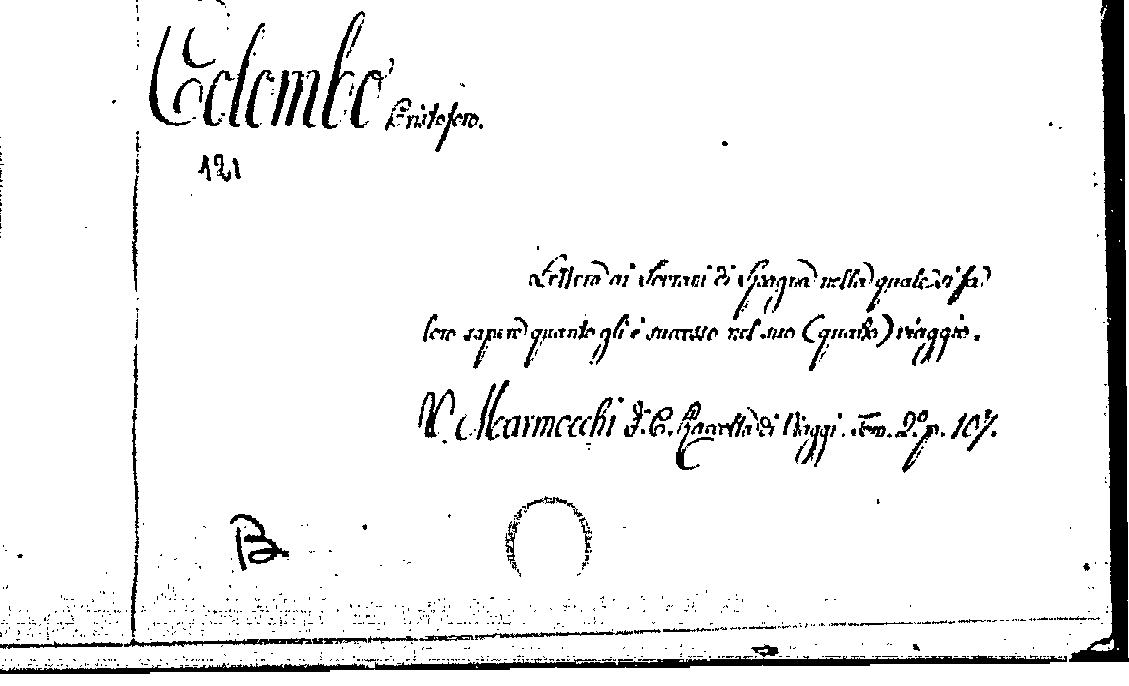 Colombo Cristoforo.
121
Lettera ai Sovrani di Spagna nella quale si fa
loro sapere quanto gli è successo nel suo (quarto) viaggio.
V. Marmocchi F. C. Raccolta di Viaggi. Tom. 2.º p. 107.
B